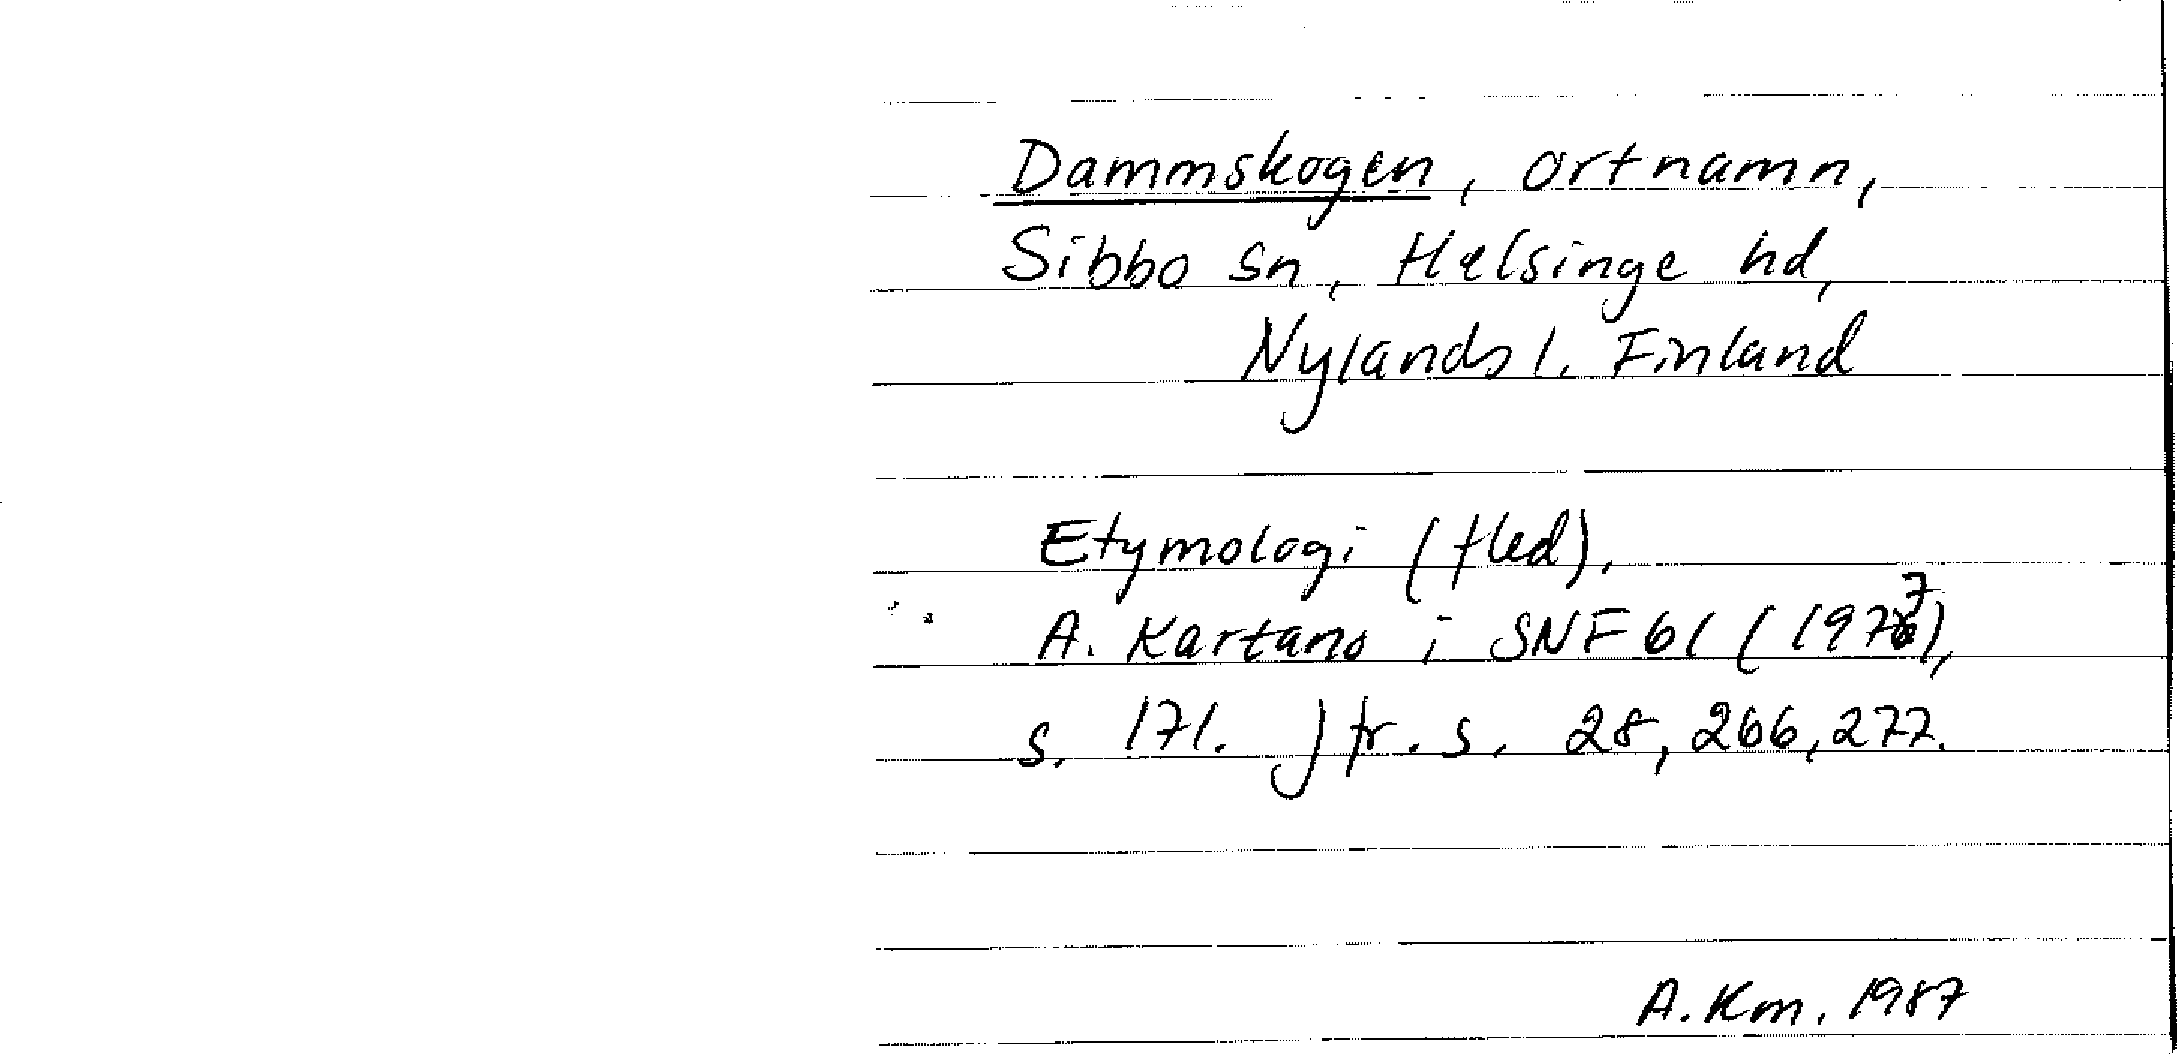 Dammskogen, ortnamn,
Sibbo sn, Helsinge hd,
Nylands l. Finland
Etymologi (fled),
A. Kartano i SNF 61 (1977),
s. 171. Jfr. s. 28, 266, 277.
A. Km. 1987